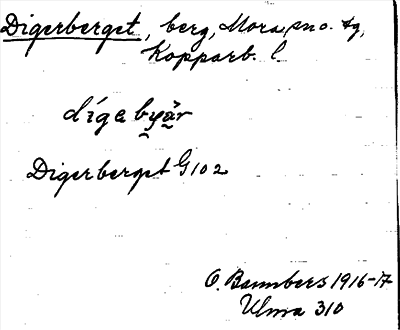 Digerberget, berg, Mora sn o. tg,
Kopparb. l
dígebyär
Digerberget G102
O. Bannbers 1916-17
Ulma 310